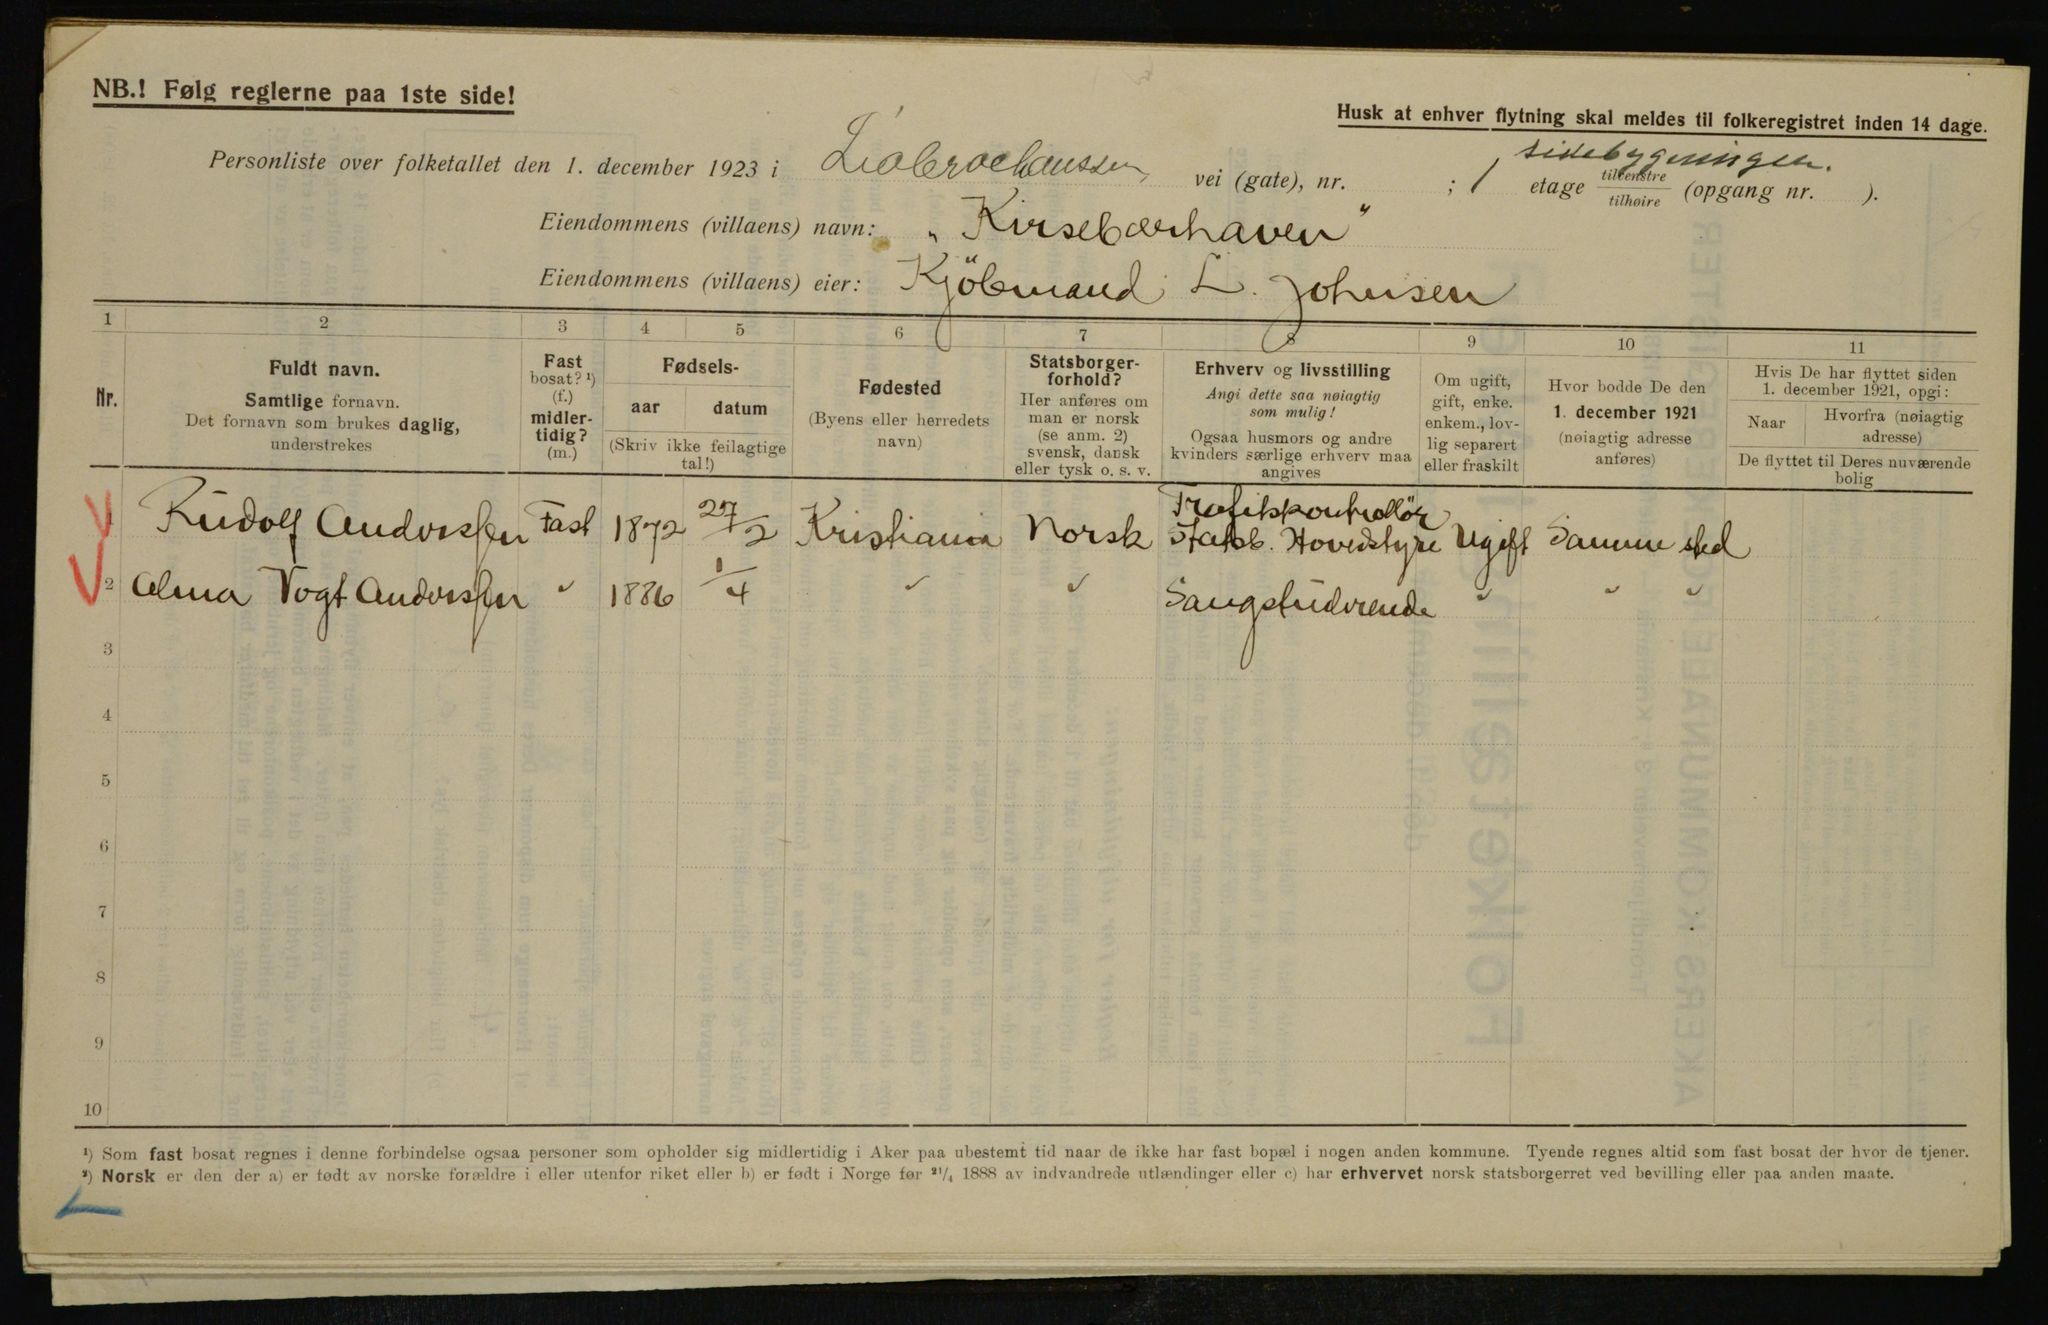 NB.! Følg reglerne paa 1ste side!
Husk at enhver flytning skal meldes til folkeregistret inden 14 dage.
Personliste over folketallet den 1. december 1923 i Liabrochaussen vei (gate), nr. ; 1 etage tilvenstre tilhøire (opgang nr. ).
sidebygningen.
Eiendommens (villaens) navn: „Kirsebærhaven"
Eiendommens (villaens) eier: Kjöbmand L. Johnsen
1 2 3 4 5 6 7 8 9 10 11
Nr.
Fuldt navn.
Samtlige fornavn.
Det fornavn som brukes daglig,
understrekes
Fast
bosat? ¹)
(f.)
midler-
tidig?
(m.)
Fødsels-
aar datum
(Skriv ikke feilagtige
tal!)
Fødested
(Byens eller herredets
navn)
Statsborger-
forhold?
Her anføres om
man er norsk
(se anm. 2)
svensk, dansk
eller tysk o. s. v.
Erhverv og livsstilling
Angi dette saa nøiagtig
som mulig!
Ogsaa husmors og andre
kvinders særlige erhverv maa
angives
Om ugift,
gift, enke.
enkem., lov-
lig separert
eller fraskilt
Hvor bodde De den
1. december 1921
(nøiagtig adresse
anføres)
Hvis De har flyttet siden
1. december 1921, opgi:
Naar
Hvorfra (nøiagtig
adresse)
De flyttet til Deres nuværende
bolig
1 Rudolf Anderssen Fast 1872 27/2 Kristiania Norsk Trafikkontrollör
Statsb. Hovedstyre Ugift Samme sted
2 Alma Vogt Anderssen " 1886 1/4 " " Sangstuderende " " "
3
4
5
6
7
8
9
10
¹) Som fast bosat regnes i denne forbindelse ogsaa personer som opholder sig midlertidig i Aker paa ubestemt tid naar de ikke har fast bopæl i nogen anden kommune. Tyende regnes altid som fast bosat der hvor de tjener.
²) Norsk er den der a) er født av norske forældre i eller utenfor riket eller b) er født i Norge før ²¹/₄ 1888 av indvandrede utlændinger eller c) har erhvervet norsk statsborgerret ved bevilling eller paa anden maate.